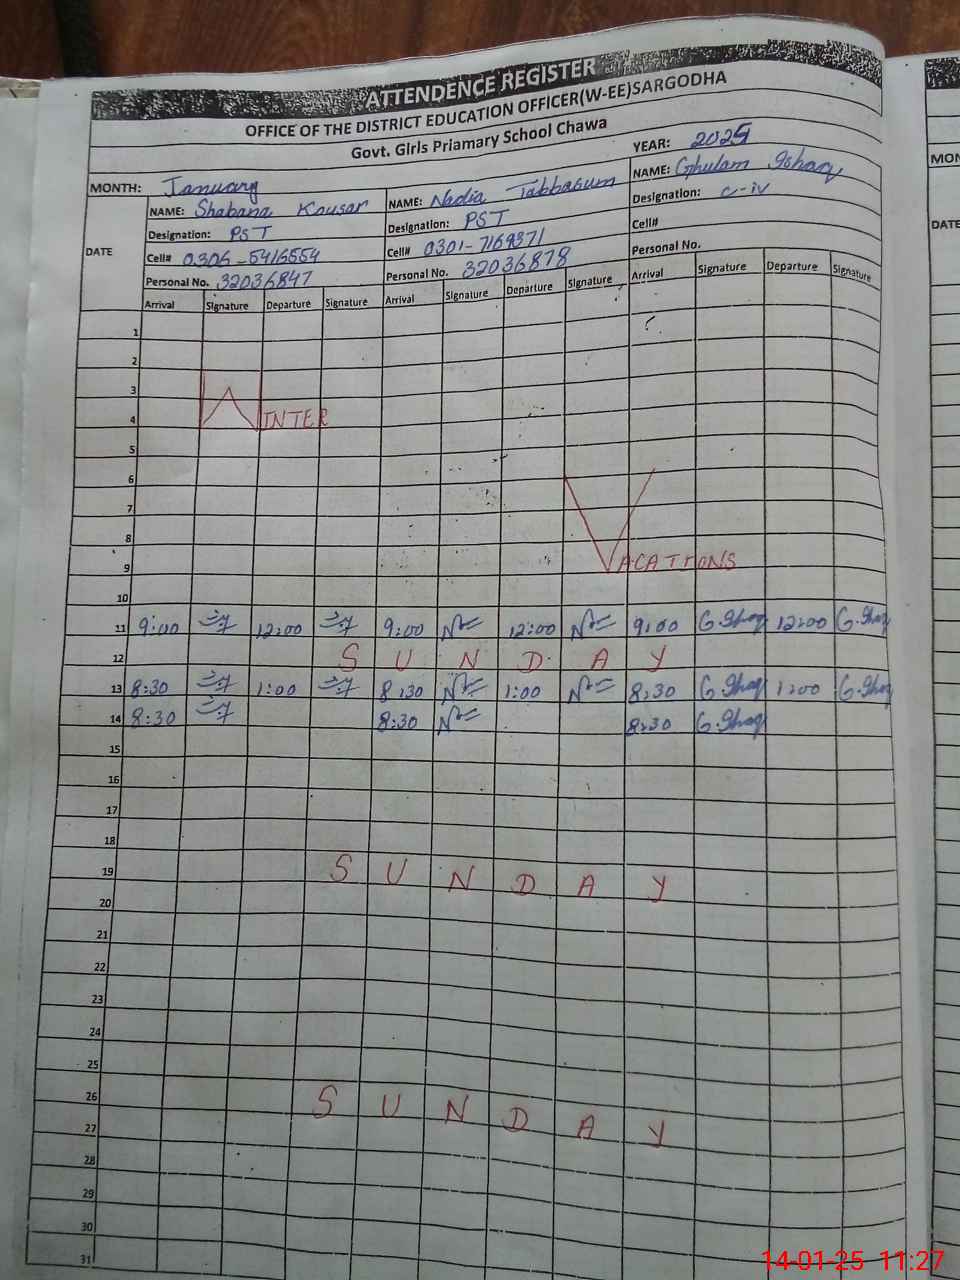 ATTENDENCE REGISTER
OFFICE OF THE DISTRICT EDUCATION OFFICER(W-EE)SARGODHA
Govt. Girls Priamary School Chawa
MONTH: January YEAR: 2025
NAME: Shabana Kousar NAME: Nadia Tabbasum NAME: Ghulam Ishaq
Designation: PST Designation: PST Designation: C-iv
DATE Cell# 0306-5416554 Cell# 0301-7169371 Cell#
Personal No. 32036847 Personal No. 32036878 Personal No.
Arrival Signature Departure Signature Arrival Signature Departure Signature Arrival Signature Departure Signature
1
2
3
4 WINTER
5
6
7
8
9 VACATIONS
10
11 9:00 12:00 9:00 12:00 9:00 G.Ishaq 12:00 G.Ishaq
12 SUNDAY
13 8:30 1:00 8:30 1:00 8:30 G.Ishaq 1:00 G.Ishaq
14 8:30 8:30 8:30 G.Ishaq
15
16
17
18
19 SUNDAY
20
21
22
23
24
25
26 SUNDAY
27
28
29
30
31
MON
DATE
14-01-25 11:27